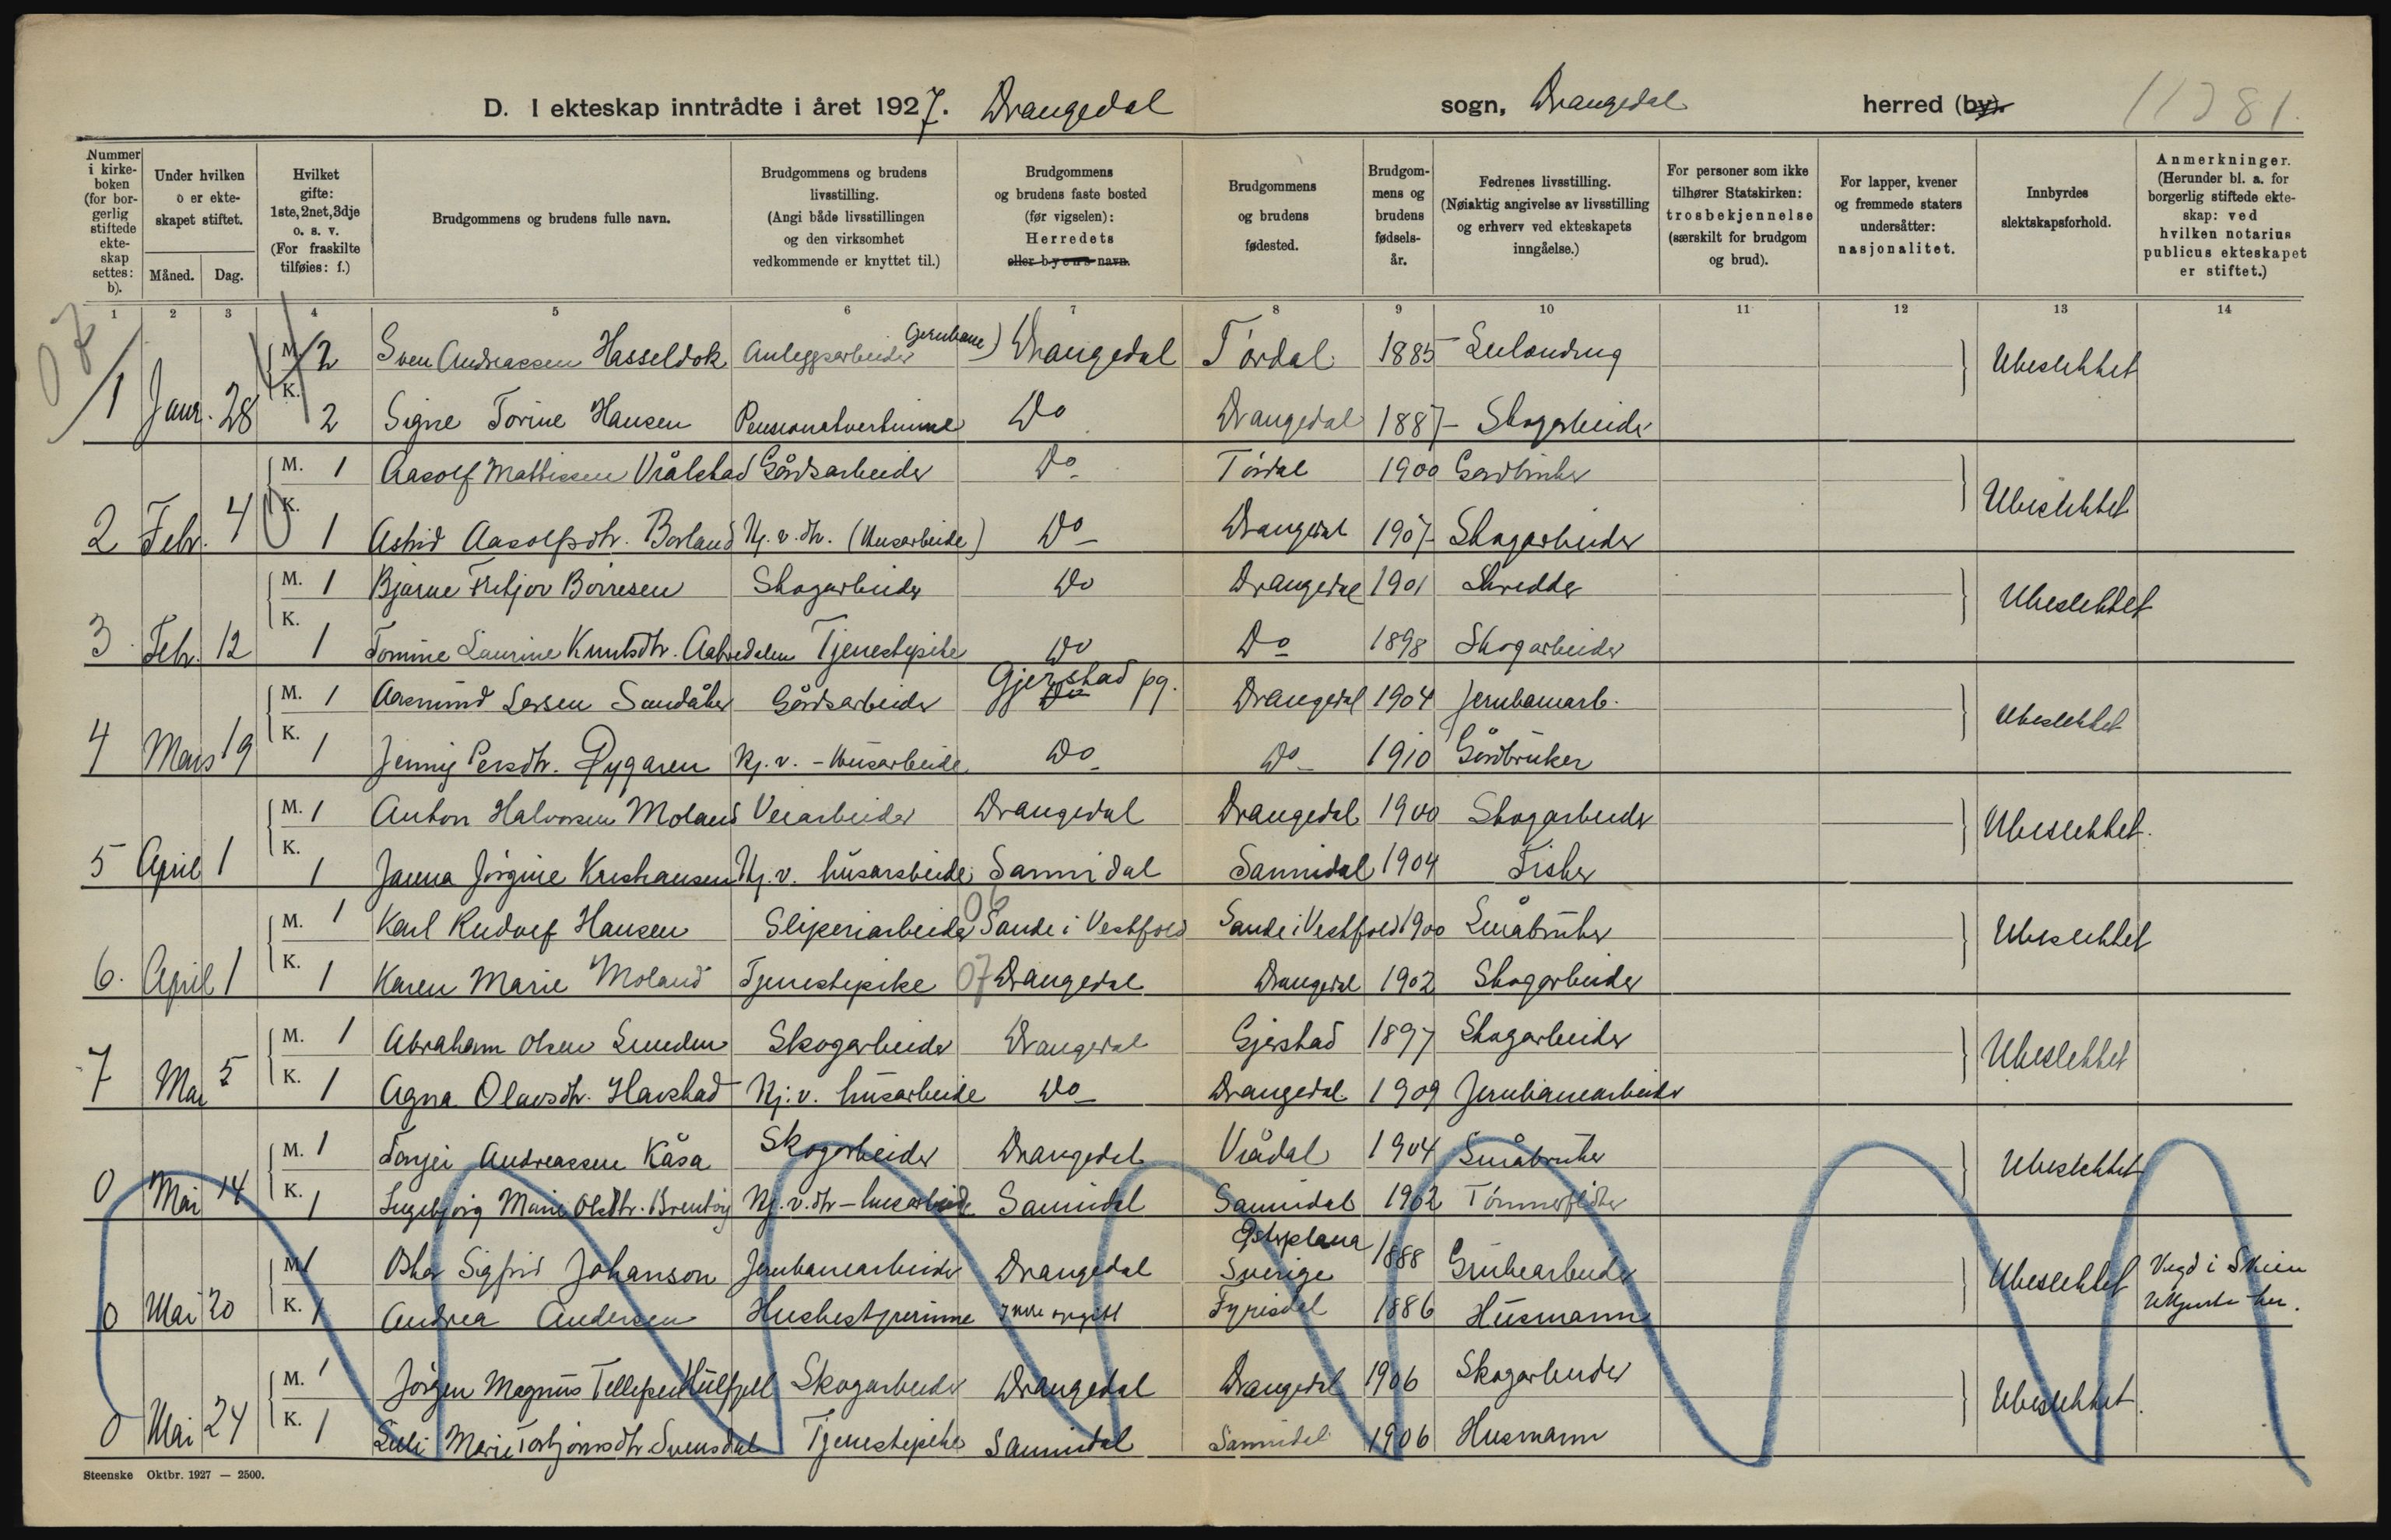 D. I ekteskap inntrådte i året 1927. Drangedal sogn, Drangedal herred (by). 81.
Nummer i kirkeboken (for borgerlig stiftede ekteskap settes: b).
Under hvilken o er ekteskapet stiftet.
Måned. Dag.
Hvilket gifte: 1ste, 2net, 3dje o. s. v. (For fraskilte tilføies: f.)
Brudgommens og brudens fulle navn.
Brudgommens og brudens livsstilling. (Angi både livsstillingen og den virksomhet vedkommende er knyttet til.)
Brudgommens og brudens faste bosted (før vigselen): Herredets eller byens navn.
Brudgommens og brudens fødested.
Brudgommens og brudens fødselsår.
Fedrenes livsstilling. (Nøiaktig angivelse av livsstilling og erhverv ved ekteskapets inngåelse.)
For personer som ikke tilhører Statskirken: trosbekjennelse (særskilt for brudgom og brud).
For lapper, kvener og fremmede staters undersåtter: nasjonalitet.
Innbyrdes slektskapsforhold.
Anmerkninger. (Herunder bl. a. for borgerlig stiftede ekteskap: ved hvilken notarius publicus ekteskapet er stiftet.)
1 2 3 4 5 6 7 8 9 10 11 12 13 14
07
M. 2 Sven Andreassen Hasseldok Anleggsarbeider (Jernbane) Drangedal Tørdal 1885 Ubeslektet
1 Janr. 28 K. 2 Signe Torine Hansen Pensionatvertinne Do Drangedal 1887 Skogarbeider
M. 1 Aasolf Mattissen Vrålstad Gårdsarbeider Do Tørdal 1900 Gardbruker Ubeslektet
2 Febr. 4 K. 1 Astrid Aasolfsdtr. Borland Hj. v. dtr. (Husarbeide) Do Drangedal 1907 Skogarbeider
M. 1 Bjarne Fritjov Børresen Skogarbeider Do Drangedal 1901 Skredder Ubeslektet
3 Febr. 12 K. 1 Tomine Laurine Knutsdtr. Tjenestepike Do Do 1898 Skogarbeider
M. 1 Aasmund Larsen Sandåker Gårdsarbeider Gjerstad pg. Do Drangedal 1904 Jernbanearb. Ubeslektet
4 Mars 19 K. 1 Jenny Persdtr. Dygaren Hj. v. - Husarbeide Do Do 1910 Gårdbruker
M. 1 Anton Halvorsen Moland Veiarbeider Drangedal Drangedal 1900 Skogarbeider Ubeslektet.
5 April 1 K. 1 Janna Jørgine Kristiansen Hj. v. husarbeide Sannidal Sannidal 1904 Fisker
M. 1 Karl Rudolf Hansen Sliperiarbeider 06 Sande i Vestfold Sande i Vestfold 1900 Småbruker Ubeslektet
6. April 1 K. 1 Karen Marie Moland Tjenestepike 07 Drangedal Drangedal 1902 Skogarbeider
M. 1 Abraham Olsen Lunden Skogarbeider Drangedal Gjerstad 1897 Skogarbeider Ubeslektet
7 Mai 5 K. 1 Agna Olavsdtr. Havstad Hj. v. husarbeide Do Drangedal 1909 Jernbanearbeider
M. 1 Tarjei Andreassen Kåsa Skogarbeider Drangedal Vrådal 1904 Småbruker Ubeslektet
0 Mai 14 K. 1 Ingebjørg Marie Olsdtr. Hj. v. dtr - husarbeide Sannidal Sannidal 1902 Tømmerfløter
M. 1 Oskar Sigfrid Johanson Jernbanearbeider Drangedal Østerplana Sverige 1888 Grubearbeider Ubeslektet Viegd i Skien
0 Mai 20 K. 1 Andrea Andersen Husbestyrerinne Ikke opgitt Fyrisdal 1886 Husmann her.
M. 1 Jørgen Magnus Tellefsen Skogarbeider Drangedal Drangedal 1906 Skogarbeider Ubeslektet.
0 Mai 24 K. 1 Marie Torbjørnsdtr. Svensdal Tjenestepike Sannidal Sannidal 1906 Husmann
Steenske Oktbr. 1927 — 2500.